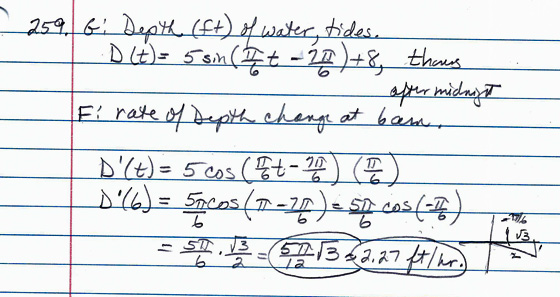 259. G: Depth (ft) of water, tides.
D(t) = 5 sin(π/6 t - 7π/6) + 8, t hours
after midnight
F: rate of Depth change at 6am.
D'(t) = 5 cos(π/6 t - 7π/6) (π/6)
D'(6) = 5π/6 cos(π - 7π/6) = 5π/6 cos(-π/6)
= 5π/6 · √3/2 = 5π/12 √3 ≈ 2.27 ft/hr.
-π/6
√3
2